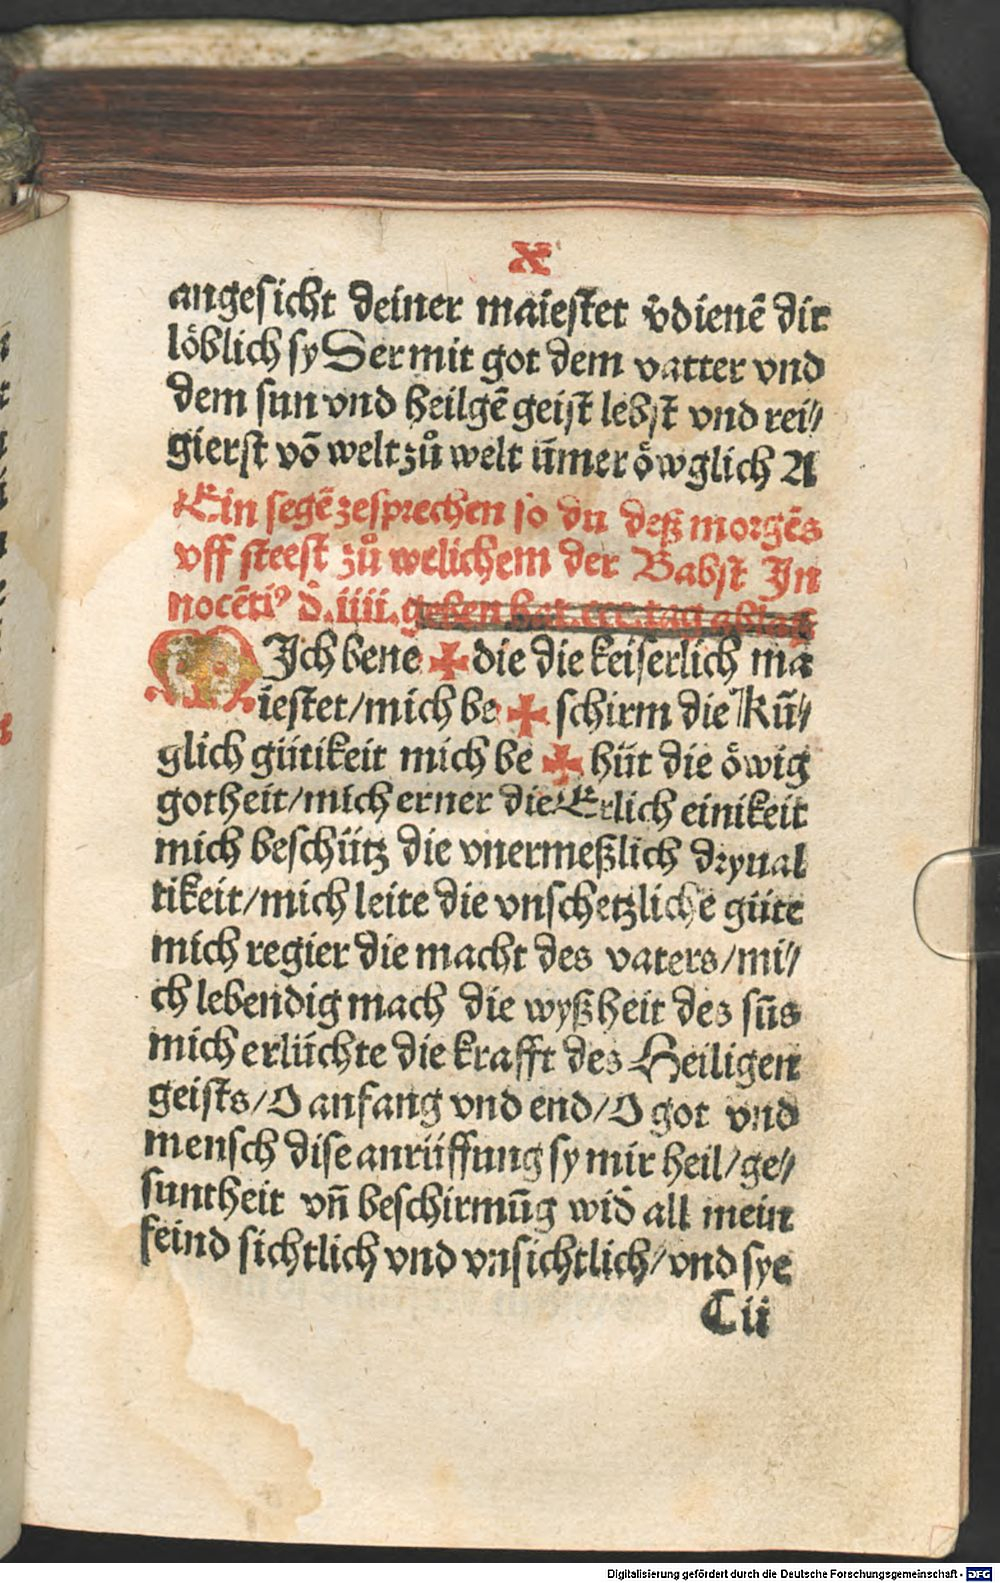 x
angesicht deiner maiestet v̄dienē dir
löblich sy Der mit got dem vatter vnd
dem sun vnd heilgē geist lebst vnd rei⸗
gierst vō welt zů welt ūmer öwglich A
Ein segē zesprechen so du deß morgēs
vff steest zů welichem der Babst In
nocētiꝰ d̄. iiii. geben hat. ccc. tag ablaß
MIch bene ✠ die die keiserlich ma
iestet/mich be ✠ schirm die Kū⸗
glich gütikeit mich be ✠ hüt die öwig
gotheit/mich erner die Erlich einikeit
mich beschütz die vnermeßlich dryual
tikeit/mich leite die vnschetzliche güte
mich regier die macht des vaters/mi⸗
ch lebendig mach die wyßheit des sūs
mich erlüchte die krafft des Heiligen
geists/O anfang vnd end/O got vnd
mensch dise anrüffung sy mir heil/ge⸗
suntheit vn̄ beschirmūg wid̄ all mein
feind sichtlich vnd vnsichtlich/vnd sye
C ii
Digitalisierung gefördert durch die Deutsche Forschungsgemeinschaft - DFG